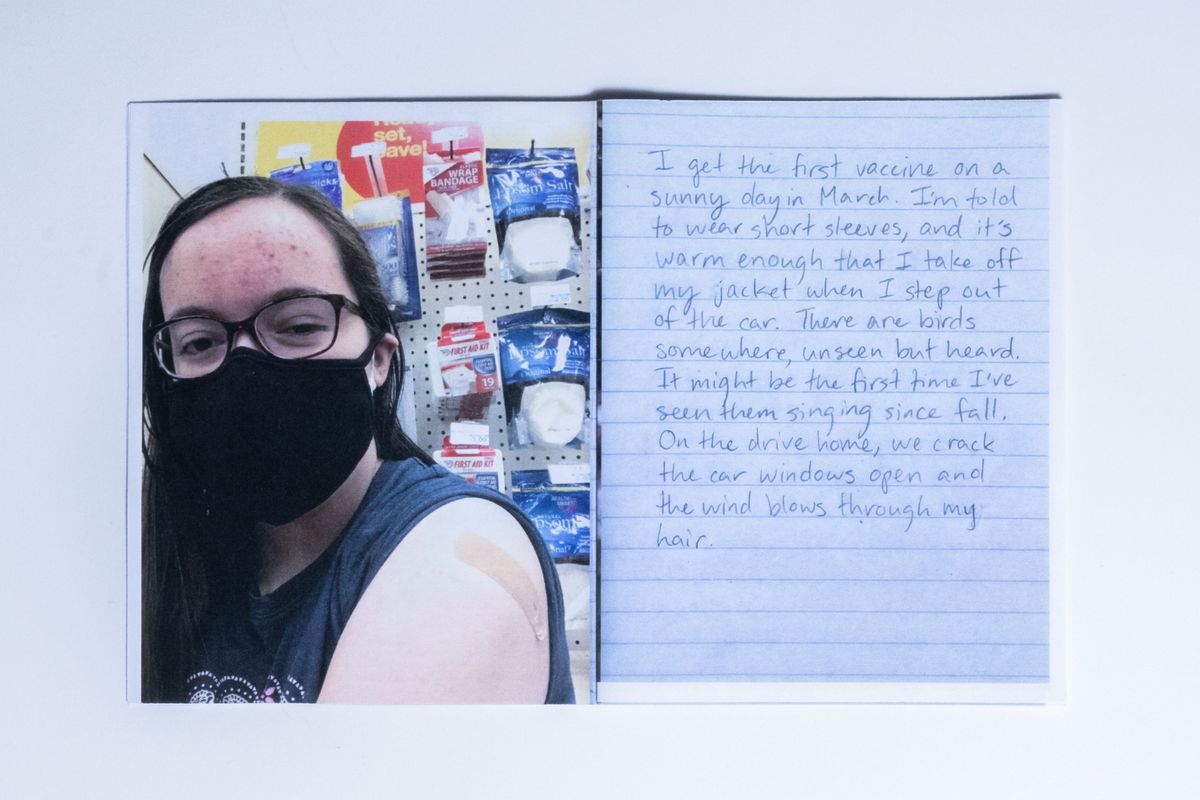 set,
save!
WRAP
BANDAGE
Epsom Salt
Original
FIRST AID KIT
19
Epsom Salt
Original
FIRST AID KIT
Epsom
I get the first vaccine on a
sunny day in March. I'm told
to wear short sleeves, and it's
warm enough that I take off
my jacket when I step out
of the car. There are birds
somewhere, unseen but heard.
It might be the first time I've
seen them singing since fall.
On the drive home, we crack
the car windows open and
the wind blows through my
hair.